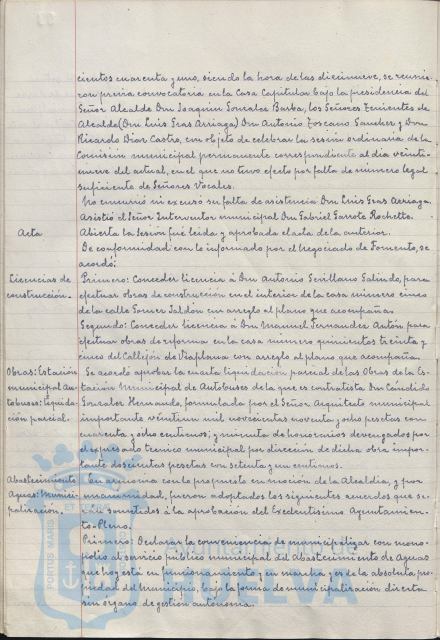 cientos cuarenta y uno, siendo la hora de las diecinueve, se reunie-
ron previa convocatoria en la Casa Capitular bajo la presidencia del
Señor Alcalde Don Joaquín González Barba, los Señores Tenientes de
Alcalde (Don Luis Gras Arriaga) Don Antonio Toscano Sanchez y Don
Ricardo Dias Castro, con objeto de celebrar la sesión ordinaria de la
Comisión municipal permanente correspondiente al dia veinti-
nueve del actual, en el que no tuvo efecto por falta de número legal
suficiente de Señores Vocales.
No concurrió ni excusó su falta de asistencia Don Luis Gras Arriaga.
Asistió el Señor Interventor municipal Don Gabriel Garrote Rochette.
Acta
Abierta la Sesión fué leida y aprobada el acta de la anterior.
De conformidad con lo informado por el Negociado de Fomento, se
acordó:
Licencias de
construcción.
Primero: Conceder licencia á Don Antonio Sevillano Galindo, para
efectuar obras de construcción en el interior de la casa número cinco
de la calle Gomez Jaldon con arreglo al plano que acompaña.
Segundo: Conceder licencia á Don Manuel Fernandez Antón para
efectuar obras de reforma en la casa número quinientos treinta y
cinco del Callejón de Viaplana con arreglo al plano que acompaña.
Obras: Estación
municipal Au-
tobuses: liquida-
ción parcial.
Se acordó aprobar la cuarta liquidación parcial de las Obras de la Es-
tación Municipal de Autobuses de la que es contratista Don Cándido
Gonzalez Hernando, formulado por el Señor Arquitecto municipal
importante veintiun mil novecientos noventa y ocho pesetas con
cuarenta y ocho centimos; y minuta de honorarios devengados por
el expresado tecnico municipal por dirección de dicha obra impor-
tante doscientas pesetas con setenta y un centimos.
Abastecimiento
Aguas: Munici-
palización.
En armonia con lo propuesto en moción de la Alcaldia, y por
unanimidad, fueron adoptados los siguientes acuerdos que se-
rán sometidos á la aprobación del Excelentísimo Ayuntamien-
to-Pleno.
Primero: Declarar la conveniencia de municipalizar con mono-
polio el servicio público municipal del Abastecimiento de Aguas
que hoy está en funcionamiento y en marcha y es de la absoluta pro-
piedad del Municipio, bajo la forma de municipalización directa
sin órgano de gestión autónoma.
PORTUS MARIS
ET
HUELVA